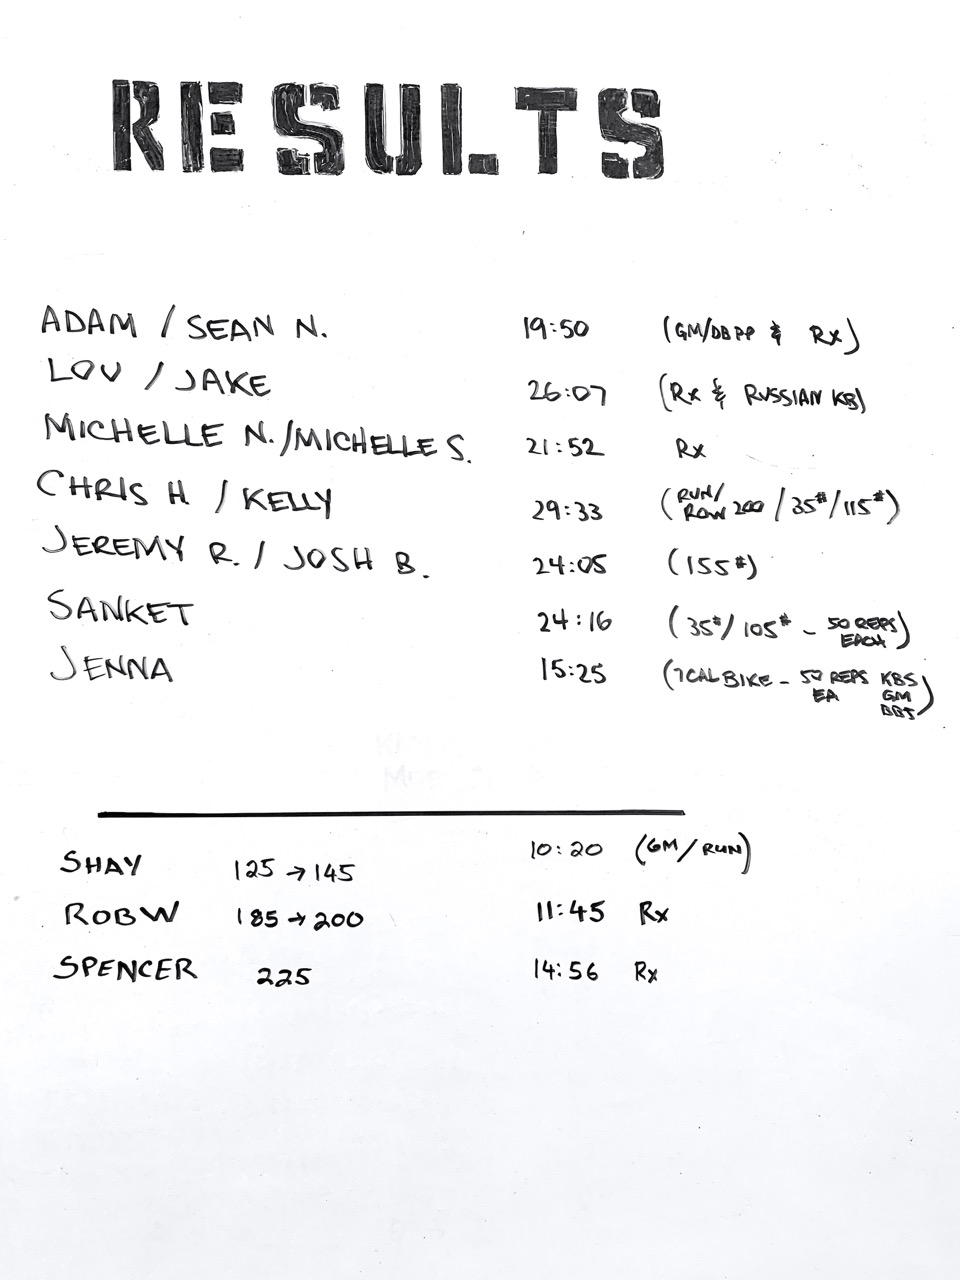 RESULTS
ADAM / SEAN N. 19:50 (GM/DB PP & Rx)
LOU / JAKE 26:07 (Rx & RUSSIAN KB)
MICHELLE N./MICHELLE S. 21:52 Rx
CHRIS H / KELLY 29:33 (RUN/ROW 200 / 35#/115#)
JEREMY R. / JOSH B. 24:05 (155#)
SANKET 24:16 (35#/105# - 50 REPS EACH)
JENNA 15:25 (7 CAL BIKE - 50 REPS EA KBS GM BBJ)
SHAY 125 → 145 10:20 (GM/RUN)
ROB W 185 → 200 11:45 Rx
SPENCER 225 14:56 Rx